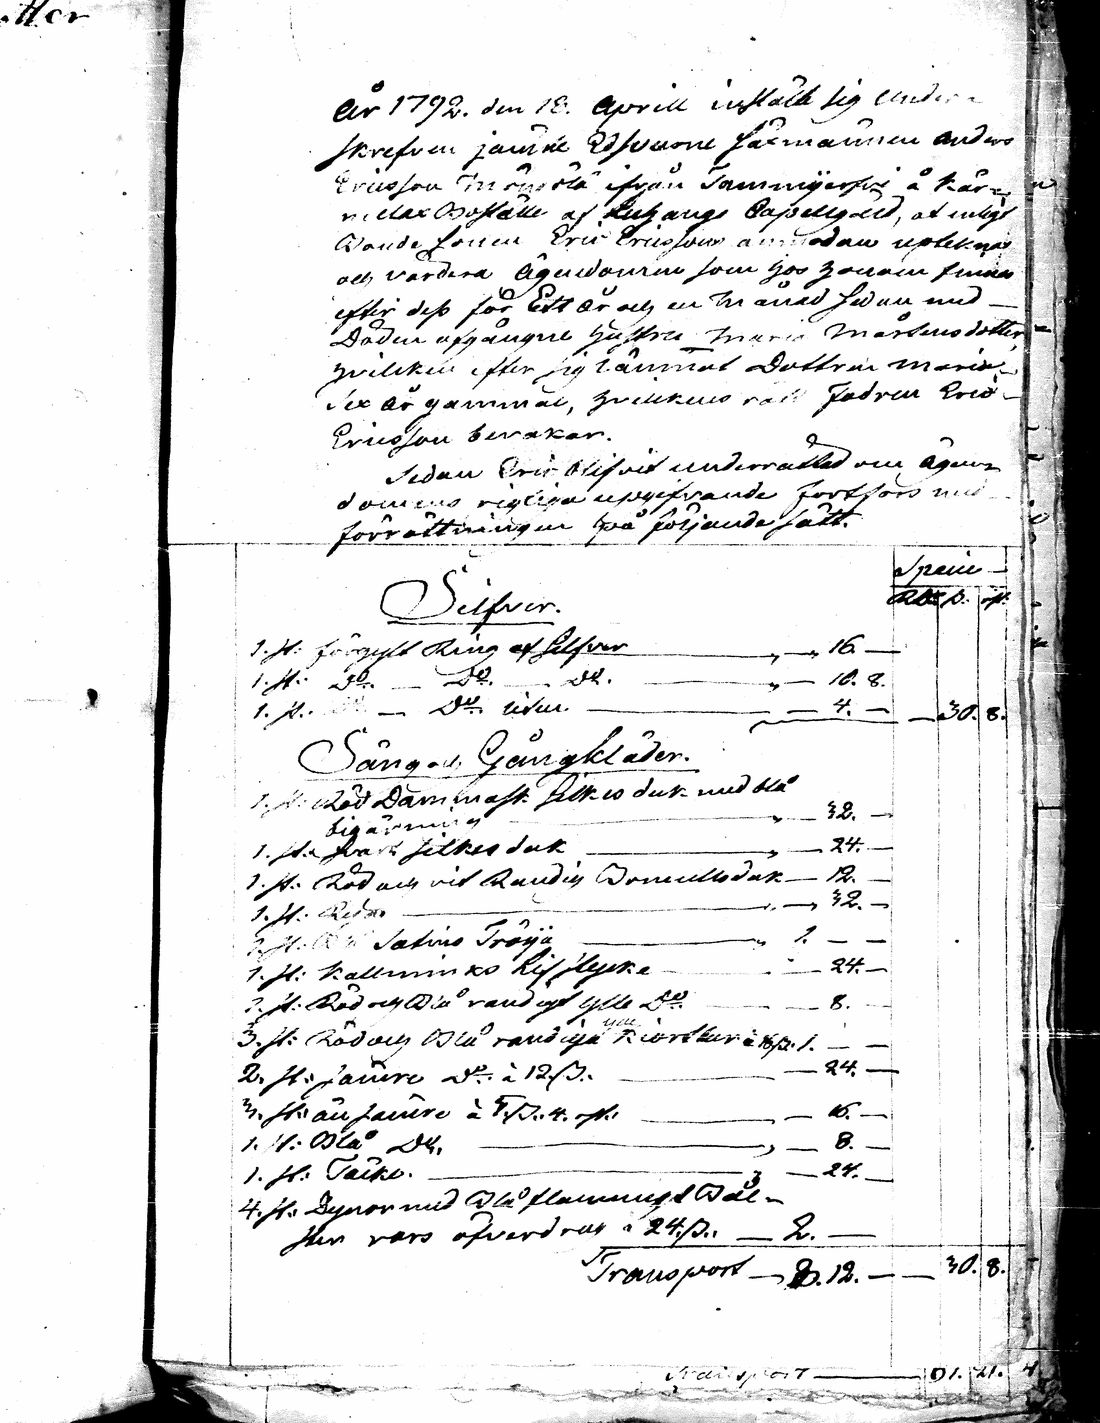 År 1792. den 18. Aprill instält sig Under-
skrefven jämte Edsvorne Sexmannen Anders
Ericsson ifrån å Kär-
Boställe af Capellgäld, at enligt
Bonde Sonen Eric Ericssons anmodan upteckna
och värdera Ägendomen som hos honom finnes
efter dess för Ett År och en Månad sedan med
Döden afgångne Hustru Maria Mårtensdotter,
hvilken efter sig lämnat Dottren Maria
Sex År gammal, hvilkens rätt Fadren Eric
Ericsson bevakar.
Sedan Eric blifvit underrättad om Ägen-
domens rigtiga upgifvande fortfors med
förrättningen på följande sätt.
Specie
Rdr ß. rst.
Silfver.
1. st: förgylt Ring af Silfver „ — 16. —
1. st: Do. — Do. — Do. „ — 10. 8.
1. st: — Do. — 4. — — 30. 8.
Säng och Gångkläder.
1. st: Röd Dammask silkes duk med blå
32. —
1. st: svart silkes duk „ — 24. —
1. st: Röd och vit Randig Bomullsduk — 12. —
1. st: „ — 32. —
1. st: Satins Tröija „ 1. — —
1. st: Kallminks Lifstycke — 24. —
1. st: Röd och Blå randigt ylle Do — 8. —
3. st: Röd och Blå randiga ylle Kiortlar à 16 ß. 1. — —
2. st: sämre Do. à 12 ß. — 24. —
3. st: än sämre à 5 ß. 4. rst. — 16. —
1. st: Blå Do. „ — 8. —
1. st: Täcke. „ — 24. —
4. st: Dynor med Blå flammugt Bol-
ster vars öfverdrag à 24 ß. — 2. —
Transport — 8. 12. — — 30. 8.
Transport — 21. 4